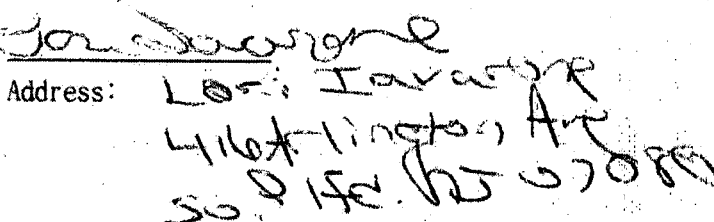 Lori Iavarone
Address: Lori Iavarone
416 Arlington Ave
So. Plfd. NJ 07080